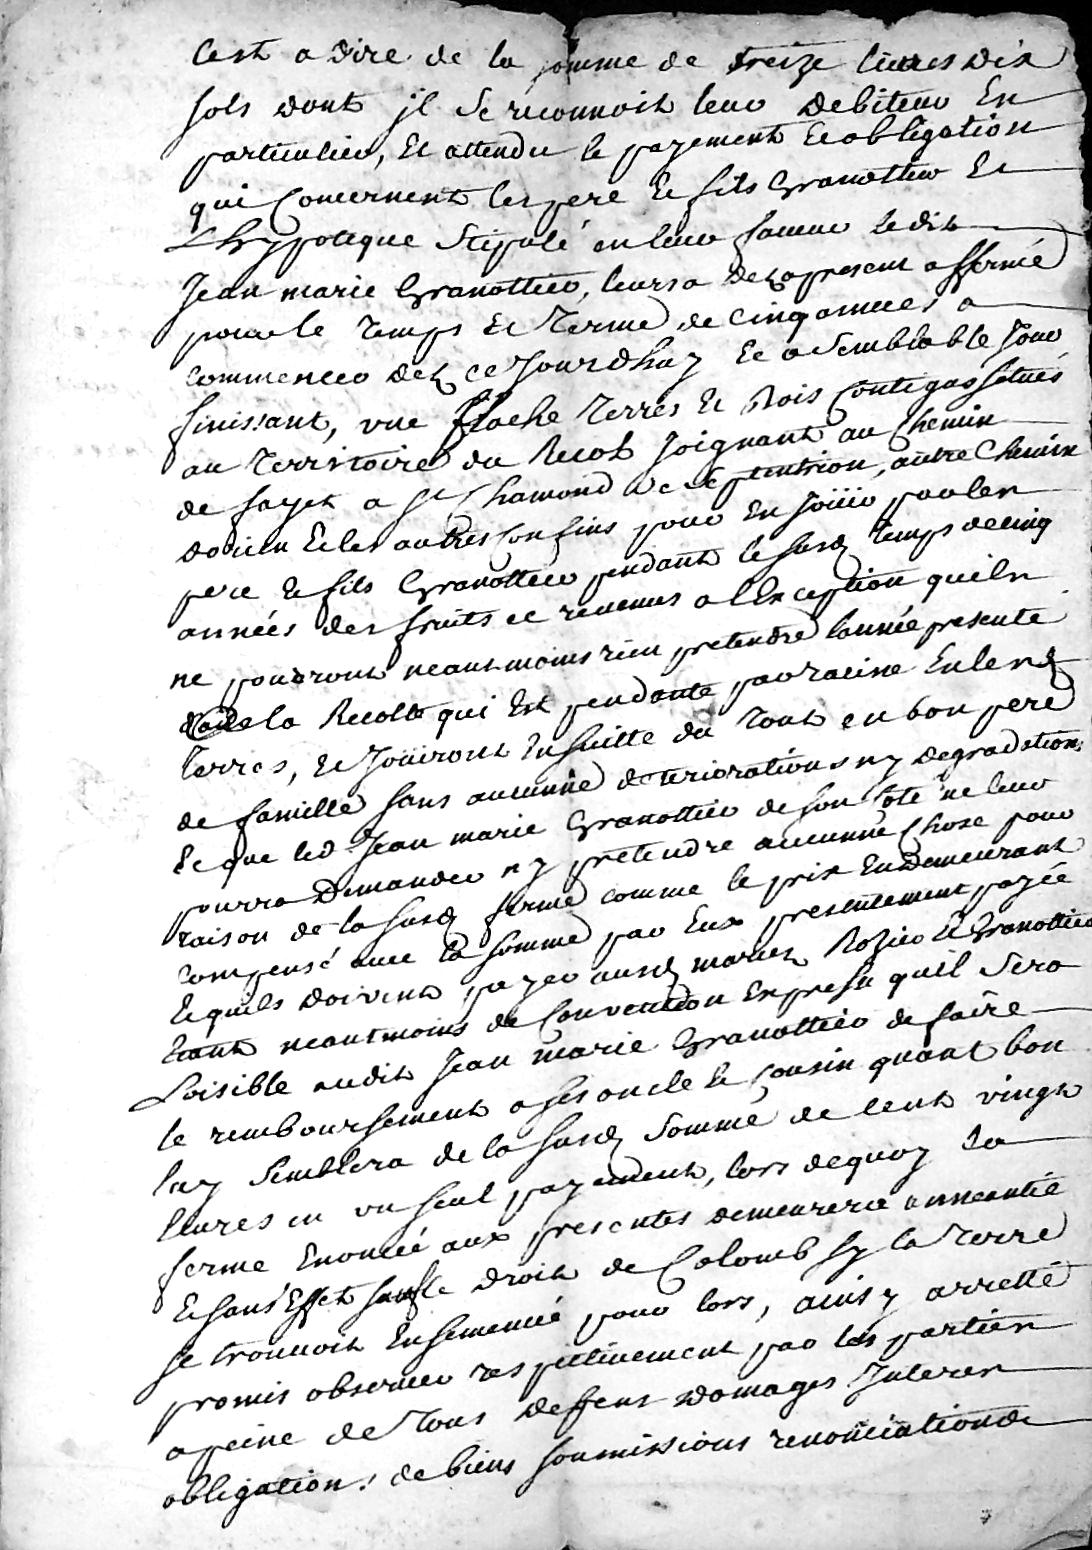 Cest a dire de la somme de treize livres dix
sols dont jl se reconnoit leur debiteur En
particulier, Et attendu le payement Et obligation
qui Concernent les pere Et fils Granottier Et
Lhypoteque Stipulé en leur faveur ledit
Jean marie Granottier, leurs a dez apresent affermé
pour le temps Et terme de Cinq années a
commencer dez ce Jourdhuy Et a Semblable Jour
finissant, vne flache terres Et Bois Contigus scitués
au territoire du Recoh Joignant au Chemin
de fayet a St Chamond de Septentrion, autre Chemin
dorien Et les autres Confins pour En Joüir par les
pere Et fils Granottier pendant le susd temps de cinq
années des fruits et revenus a lException quils
ne poudront neantmoins rien pretendre lannée presente
dans la Recolte qui Est pendante par racine En lesd
terres, Et Joüiront Ensuitte du tout en bon pere
de famille sans aucunne deteriorations ny degradations
Et que led Jean marie Granottier de son Coté ne leur
pourra Demander ny pretendre aucunne Chose pour
raison de la susd ferme comme le prix En Demeurant
Compensé avec la somme par Eux presentement payée
Et quils doivent payer ausd mariez Rozier Et Granottier
Etant neantmoins de Convention Expresse quil Sera
Loisible audit Jean marie Granottier de faire
le remboursement a ses oncle Et Cousin quant bon
luy Semblera de la susd Somme de Cent vingt
livres en vn seul payement, lors dequoy la
ferme Enoncée aux presentes demeurera anneantie
Et sans Effet sauf le droit de Colomb sy la terre
se trouvoit Ensemencé pour lors, ainsy arretté
promis observer respectivement par les parties
a peine de tous deffens domages Interes
obligations de biens soumissions renonciation de